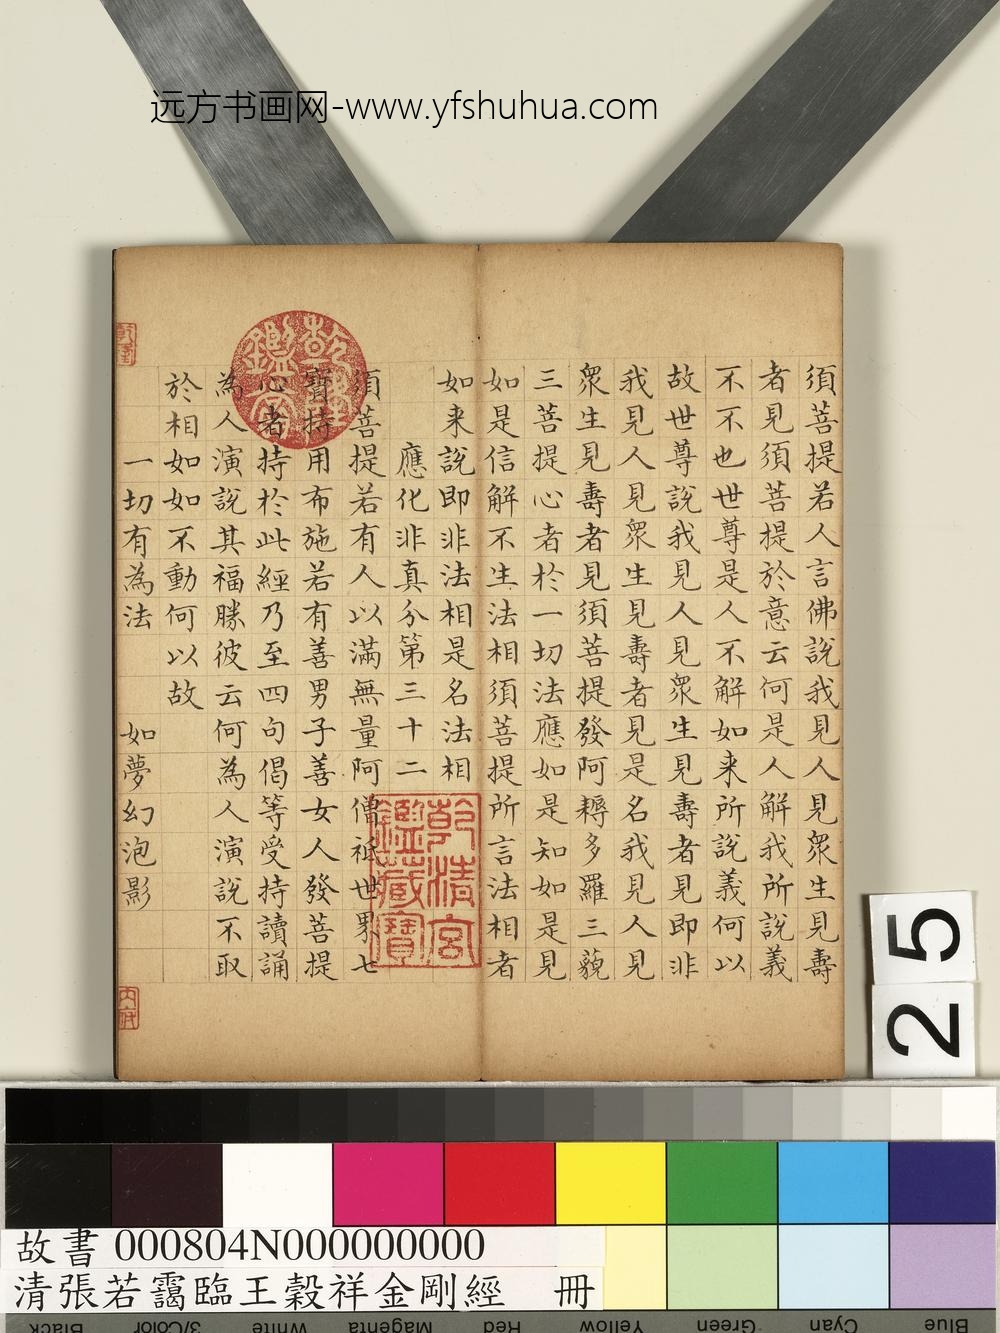 远方书画网-www.yfshuhua.com
須菩提若人言佛說我見人見眾生見壽
者見須菩提於意云何是人解我所說義
不不也世尊是人不解如来所說義何以
故世尊說我見人見眾生見壽者見即非
我見人見眾生見壽者見是名我見人見
眾生見壽者見須菩提發阿耨多羅三藐
三菩提心者於一切法應如是知如是見
如是信解不生法相須菩提所言法相者
如来說即非法相是名法相
應化非真分第三十二
須菩提若有人以滿無量阿僧祇世界七
寶持用布施若有善男子善女人發菩提
心者持於此經乃至四句偈等受持讀誦
為人演說其福勝彼云何為人演說不取
於相如如不動何以故
一切有為法 如夢幻泡影
乾隆鑑賞
乾清宮鑑藏寶
乾隆
內府
25
故書 000804N000000000
清張若靄臨王穀祥金剛經 冊
Black 3/Color White Magenta Red Yellow Green Cyan Blue